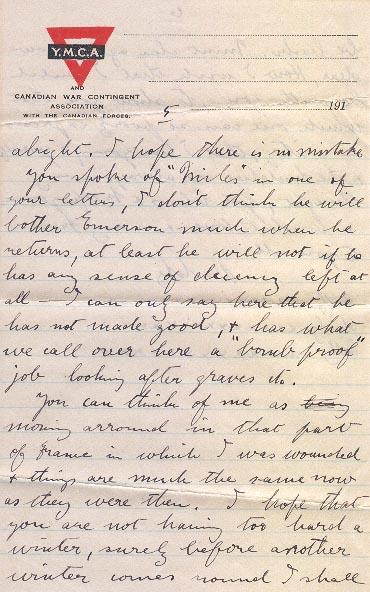 Y.M.C.A.
AND
CANADIAN WAR CONTINGENT
ASSOCIATION
WITH THE CANADIAN FORCES.
5
191
alright. I hope there is no mistake
you spoke of "Miles" in one of
your letters, I don't think he will
bother Emerson much when he
returns, at least he will not if he
has any sense of decency left at
all — I can only say here that he
has not made good, & has what
we call over here a "bomb proof"
job looking after graves etc.
You can think of me as being
moving arround in that part
of France in which I was wounded
& things are much the same now
as they were then. I hope that
you are not having too hard a
winter, surely before another
winter comes round I shall